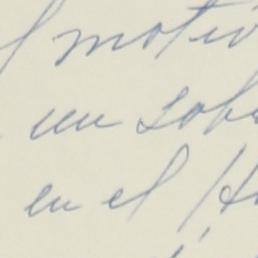 l motiv
un sob
en el H